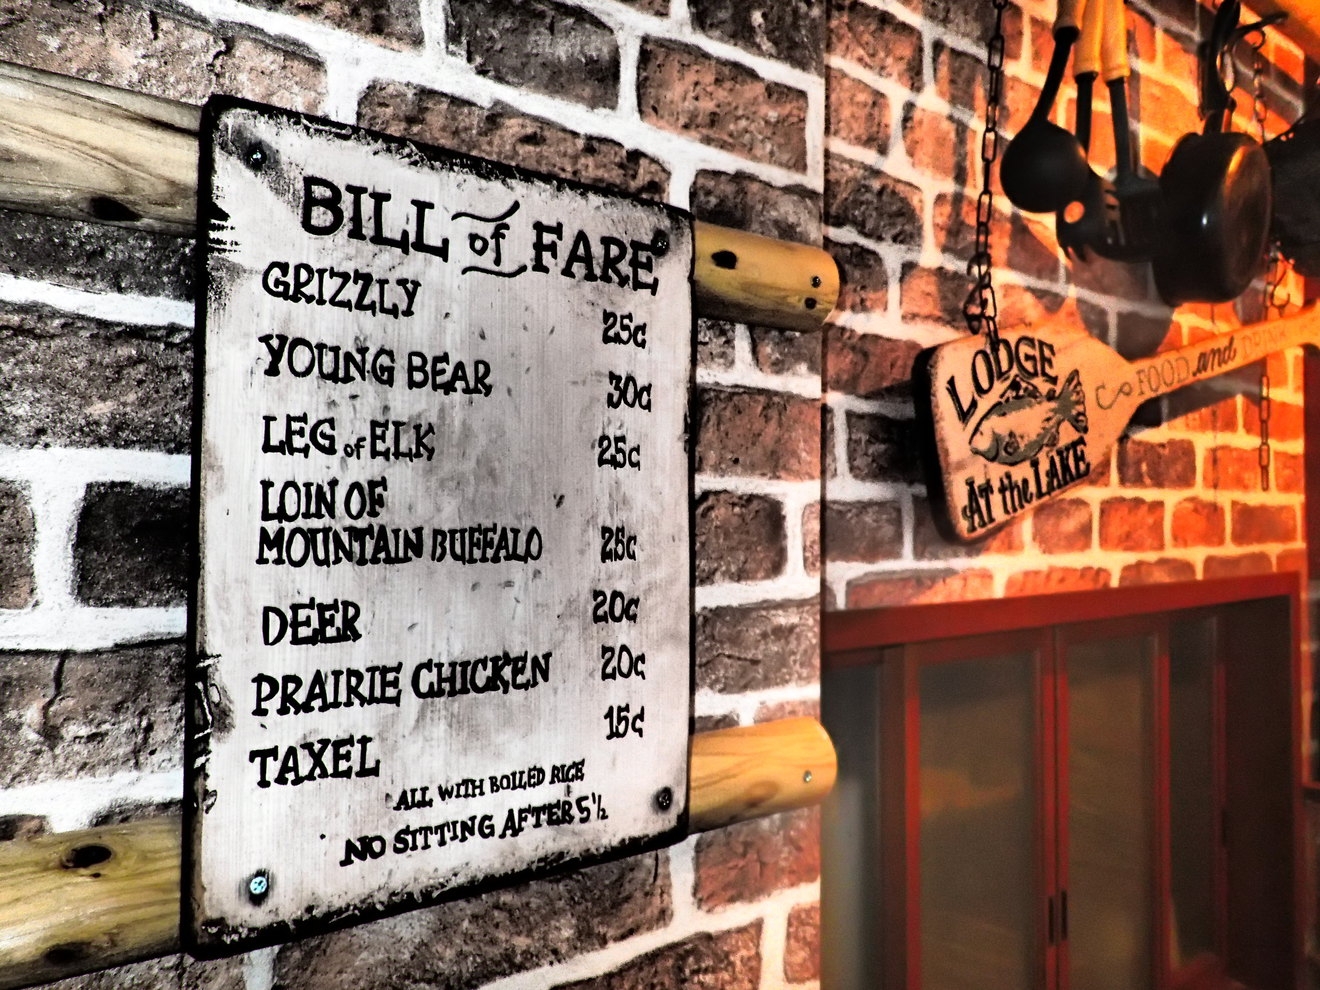 BILL of FARE
GRIZZLY 25¢
YOUNG BEAR 30¢
LEG of ELK 25¢
LOIN OF
MOUNTAIN BUFFALO 25¢
DEER 20¢
PRAIRIE CHICKEN 20¢
TAXEL 15¢
ALL WITH BOILED RICE
NO SITTING AFTER 5 ½
LODGE
AT the LAKE
FOOD and DRINK